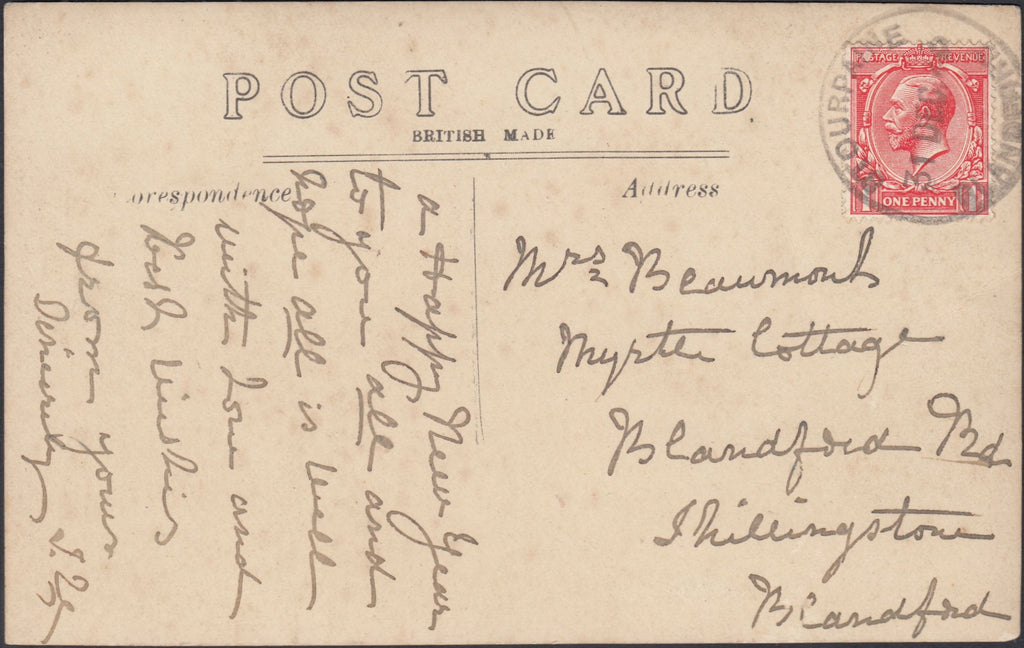 POST CARD
BRITISH MADE
orespondence
Address
POSTAGE REVENUE
ONE PENNY
31 DEC
a Happy New Year
to you all and
hope all is well
with Love and
best Wishes
from yours
Sincerely
Mrs Beaumont
Myrtle Cottage
Blandford Rd
Shillingstone
Blandford